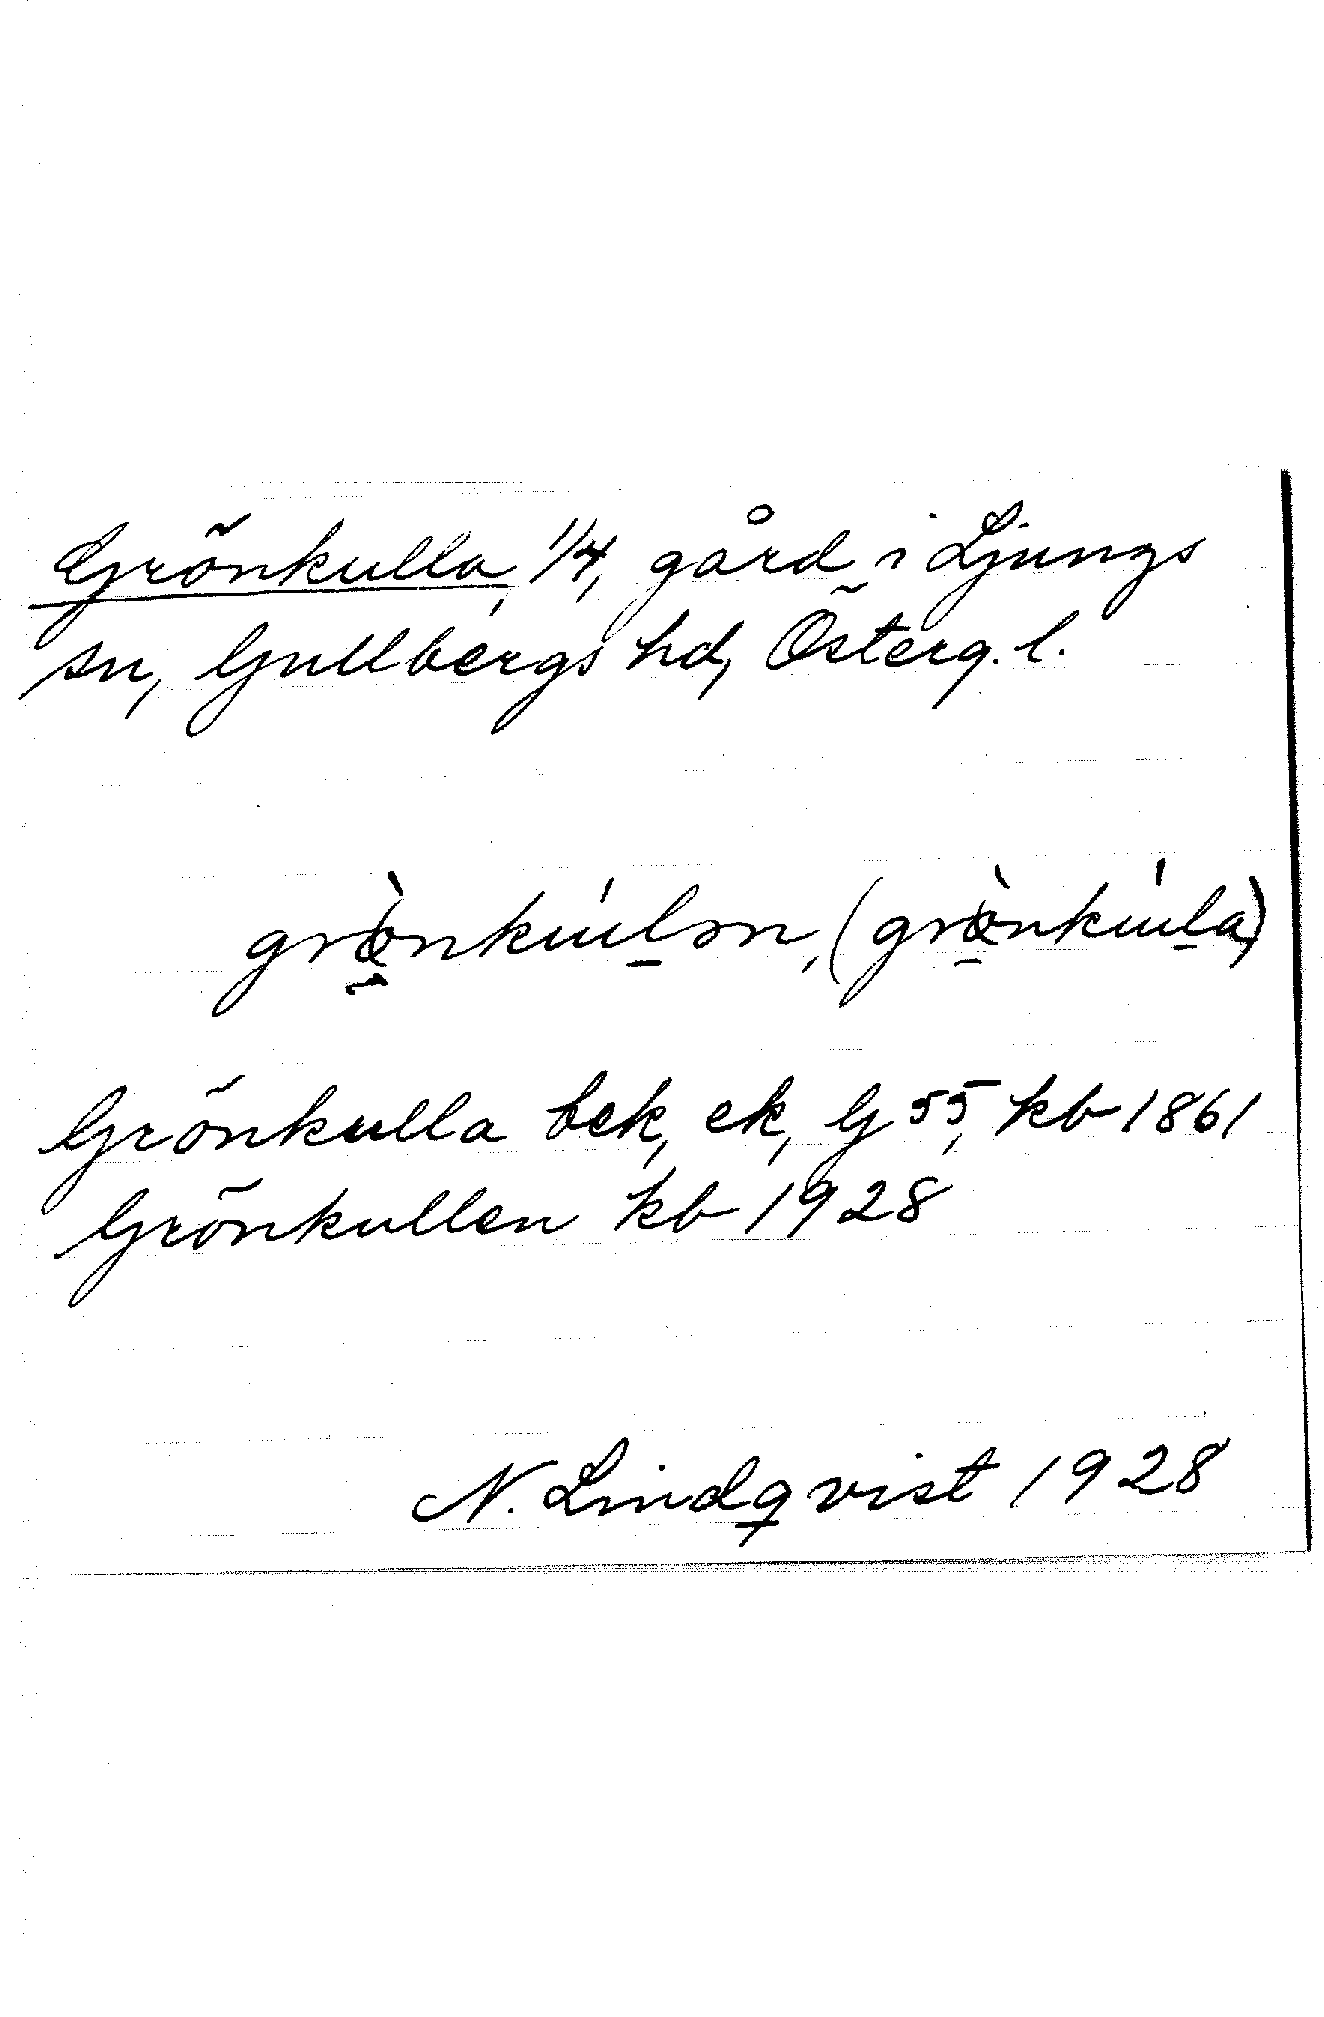 Grönkulla, 1/4, gård i Ljungs
sn, Gullbergs hd, Österg. l.
grö̀nkúlən, (grö̀nkúla)
Grönkulla bek, ek, G 55, kb 1861
Grönkullen kb 1928
N. Lindqvist 1928